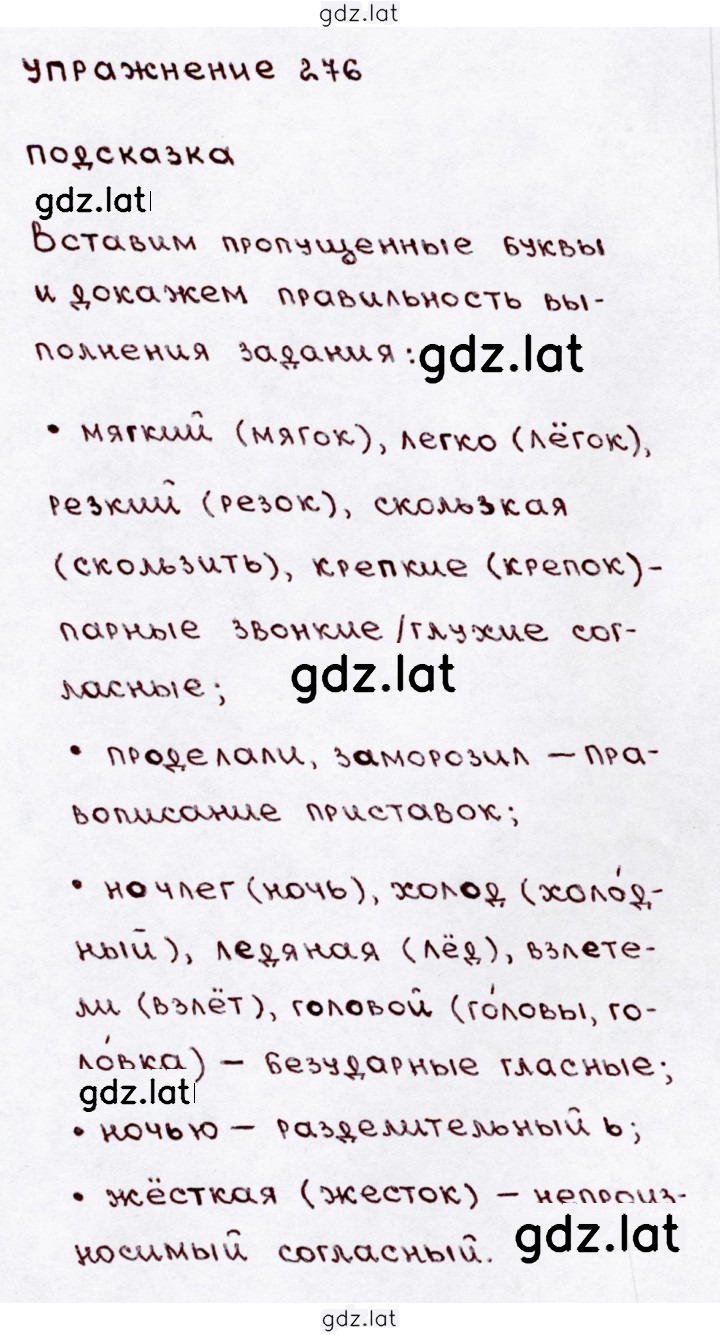 gdz.lat
упражнение 276
подсказка
gdz.lat
Вставим пропущенные буквы
и докажем правильность вы-
полнения задания:
gdz.lat
• мягкий (мягок), легко (лёгок),
резкий (резок), скользкая
(скользить), крепкие (крепок)-
парные звонкие/глухие сог-
ласные;
gdz.lat
• проделали, заморозил – пра-
вописание приставок;
• ночлег (ночь), холод (холо́д-
ный), ледяная (лёд), взлете-
ли (взлёт), головой (го́ловы, го-
ло́вка) – безударные гласные;
gdz.lat
• ночью – разделительный ь;
• жёсткая (жесток) – непроиз-
носимый согласный.
gdz.lat
gdz.lat